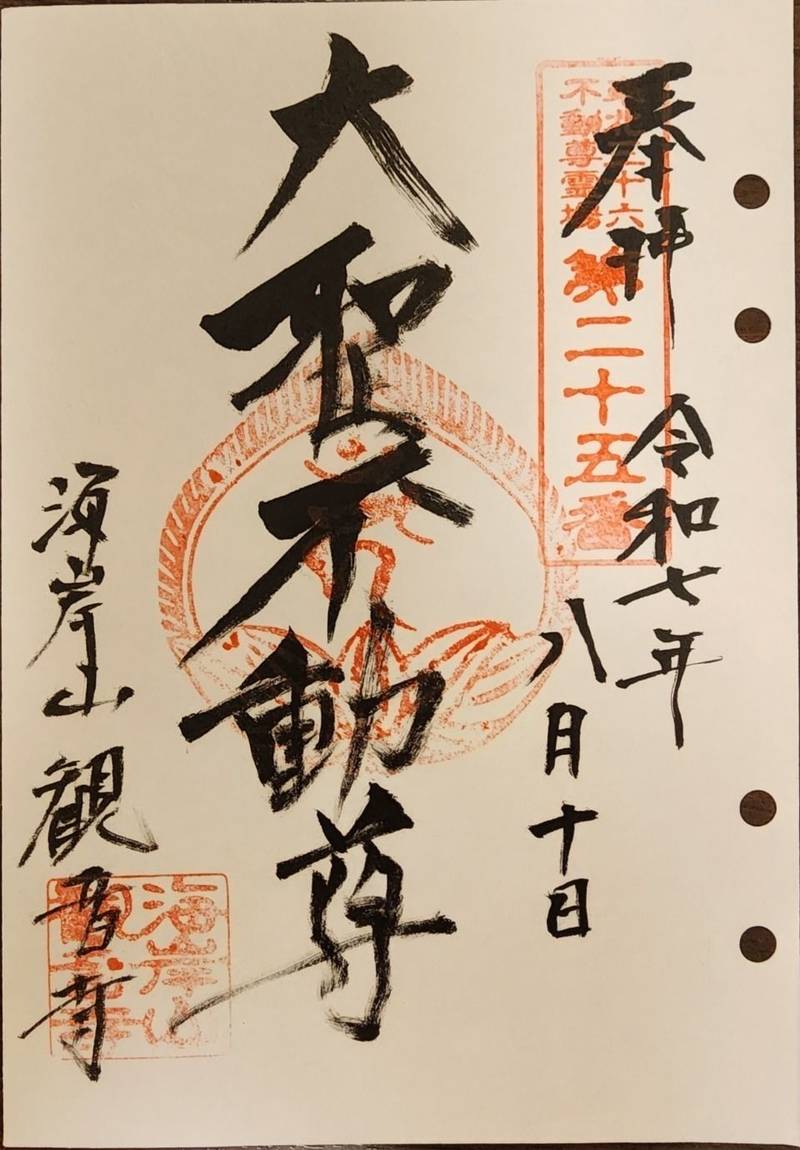 奉拝
令和七年
八月十日
東北三十六
不動尊霊場
第二十五番
大聖不動尊
海岸山観音寺
海岸山
観音寺